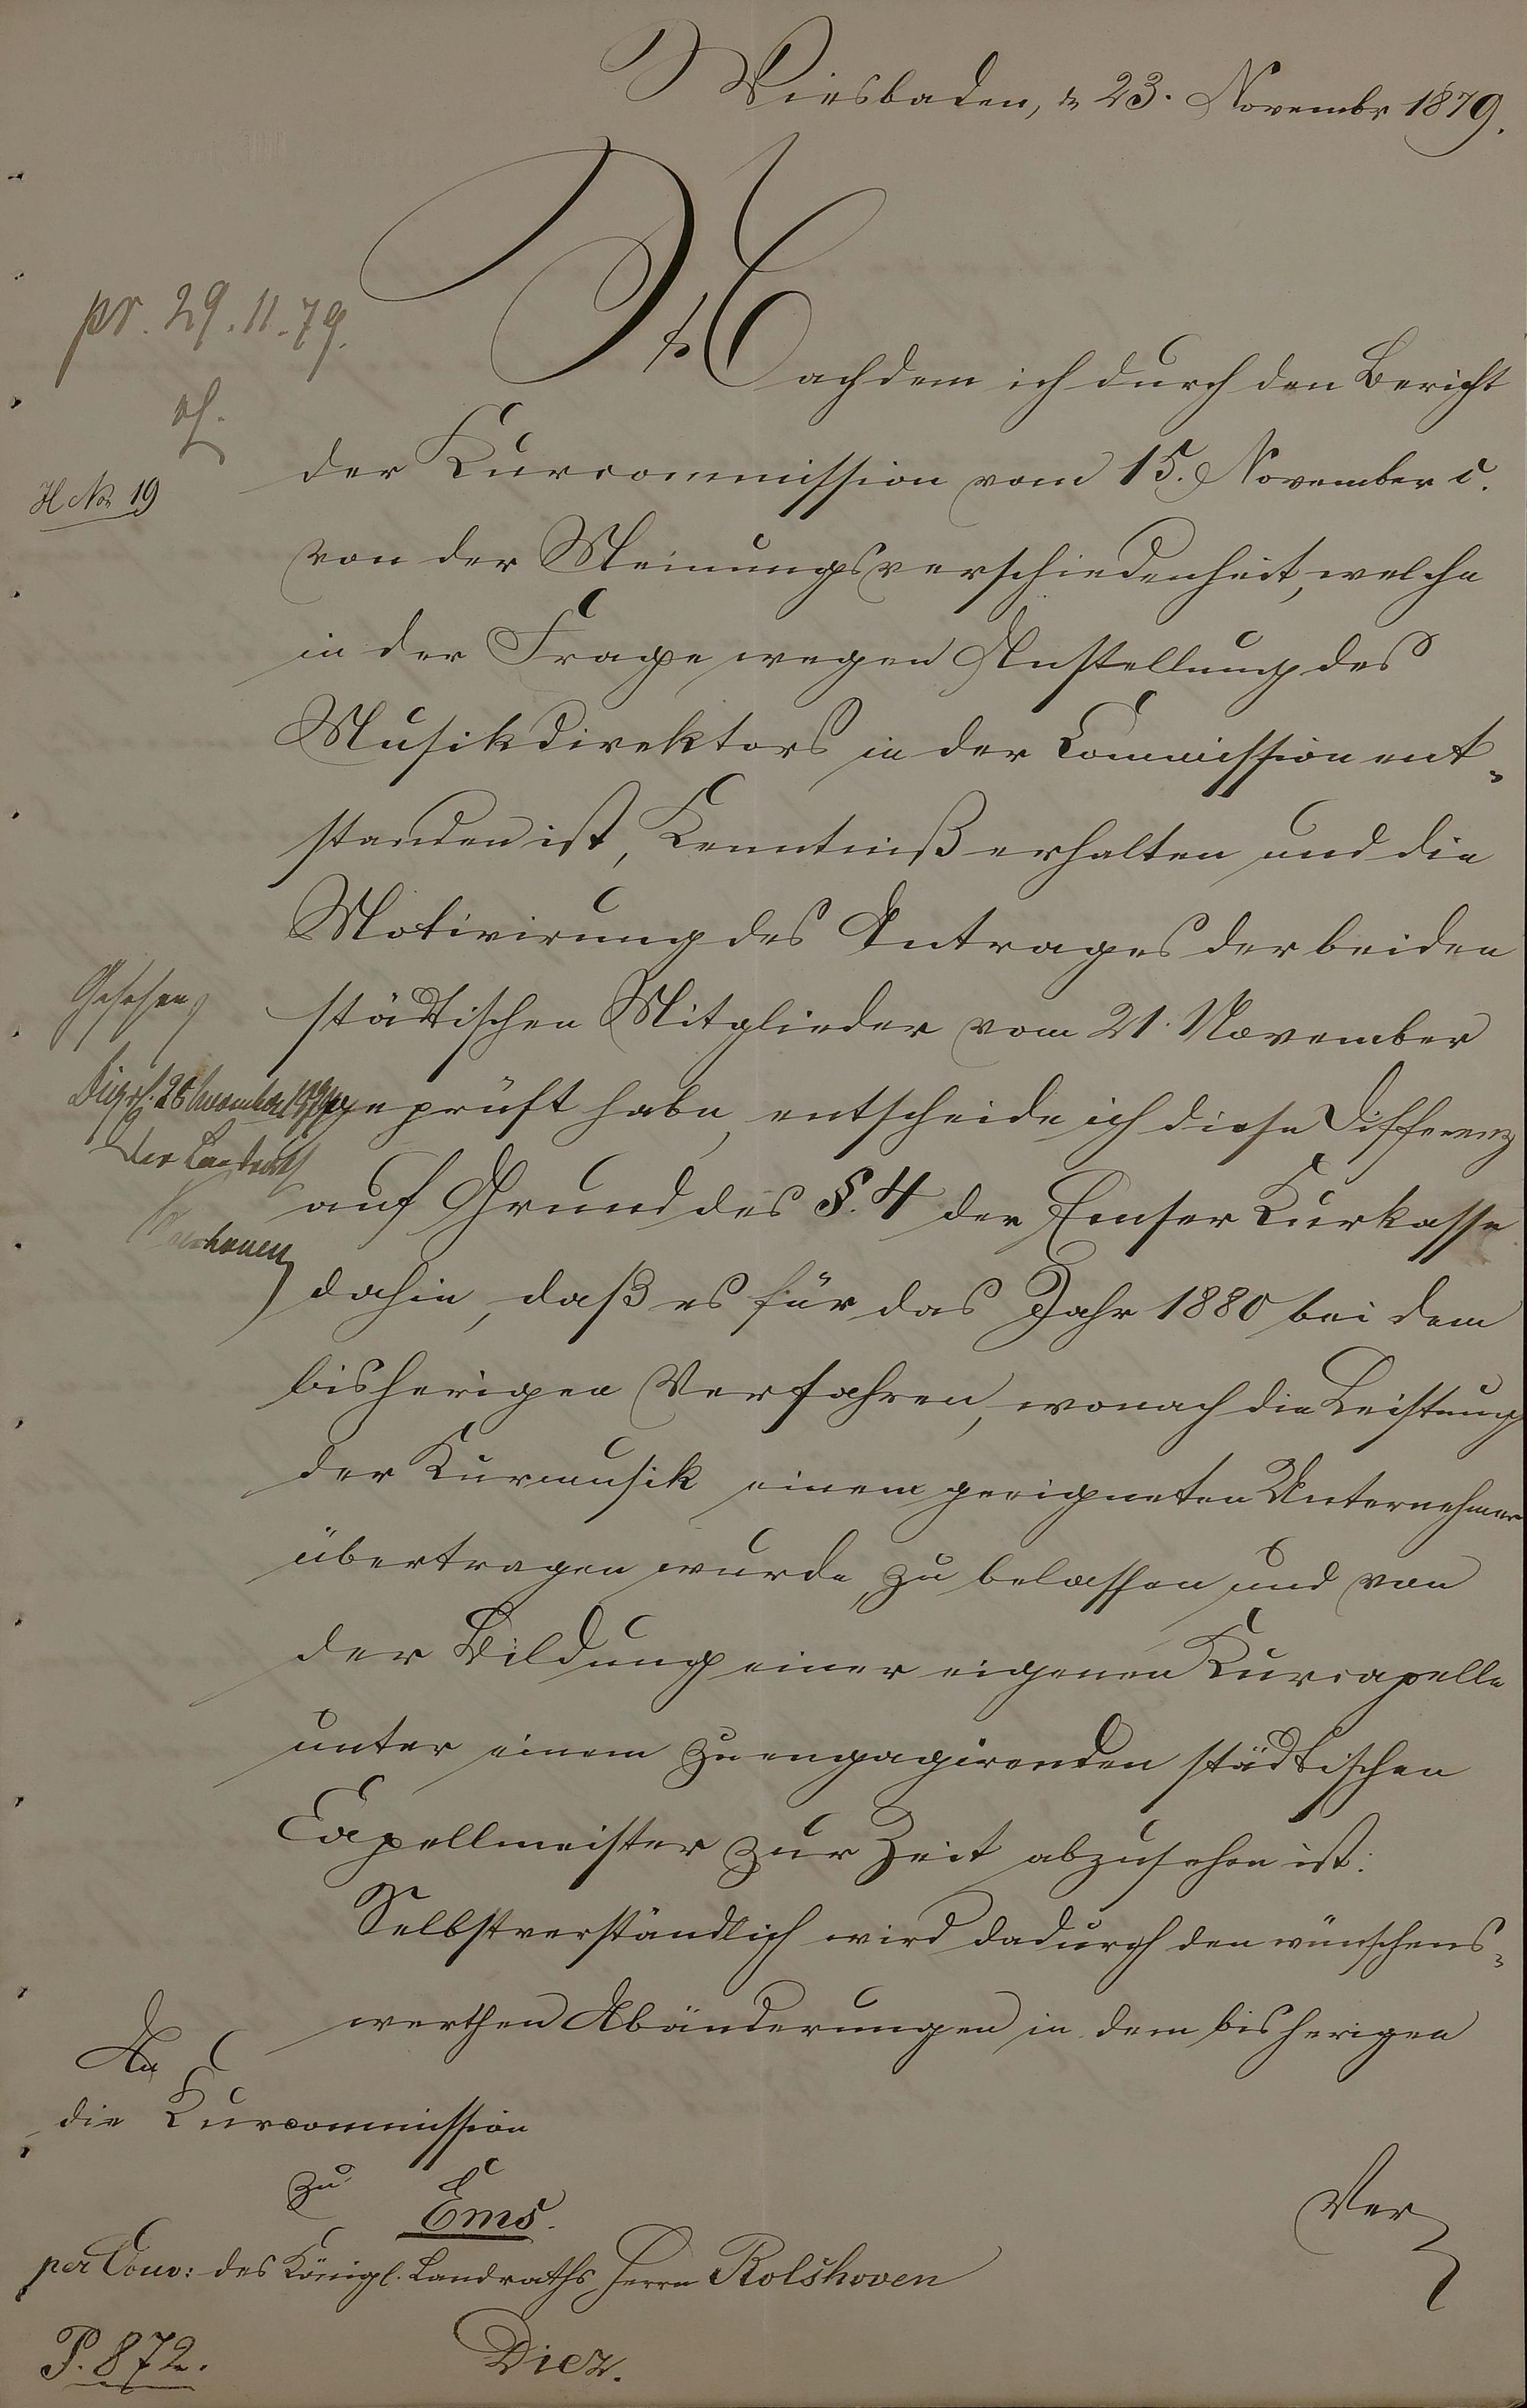 Wiesbaden, d 23. Novembr 1879.
pr. 29.11.79.
H No 19
Nachdem ich durch den Bericht
der Kurcommission vom 15. November c.
von der Meinungsverschiedenheit, welche
in der Frage wegen Anstellung des
Musikdirektors in der Commission ent-
standen ist, Kenntniß erhalten und die
Motivirung des Antrages der beiden
städtischen Mitglieder vom 21. November
geprüft habe, entscheide ich diese Differenz
auf Grund des §. 4 der Emser Kurkasse
dahin, daß es für das Jahr 1880 bei dem
bisherigen Verfahren, wonach die Leistung
der Kurmusik einem geeigneten Unternehmer
übertragen wurde, zu belassen und von
der Bildung einer eigenen Kurcapelle
unter einem zu engagirenden städtischen
Capellmeister zur Zeit abzusehen ist.
Selbstverständlich wird dadurch den wünschens-
werthen Abänderungen in dem bisherigen
Ver
Gesehen
Diez d. 28 November 1879
Der Landrath
Rolshoven
An
die Kurcommission
zu
Ems.
per Couv: des Königl. Landraths Herrn Rolshoven
Diez.
P. 872.